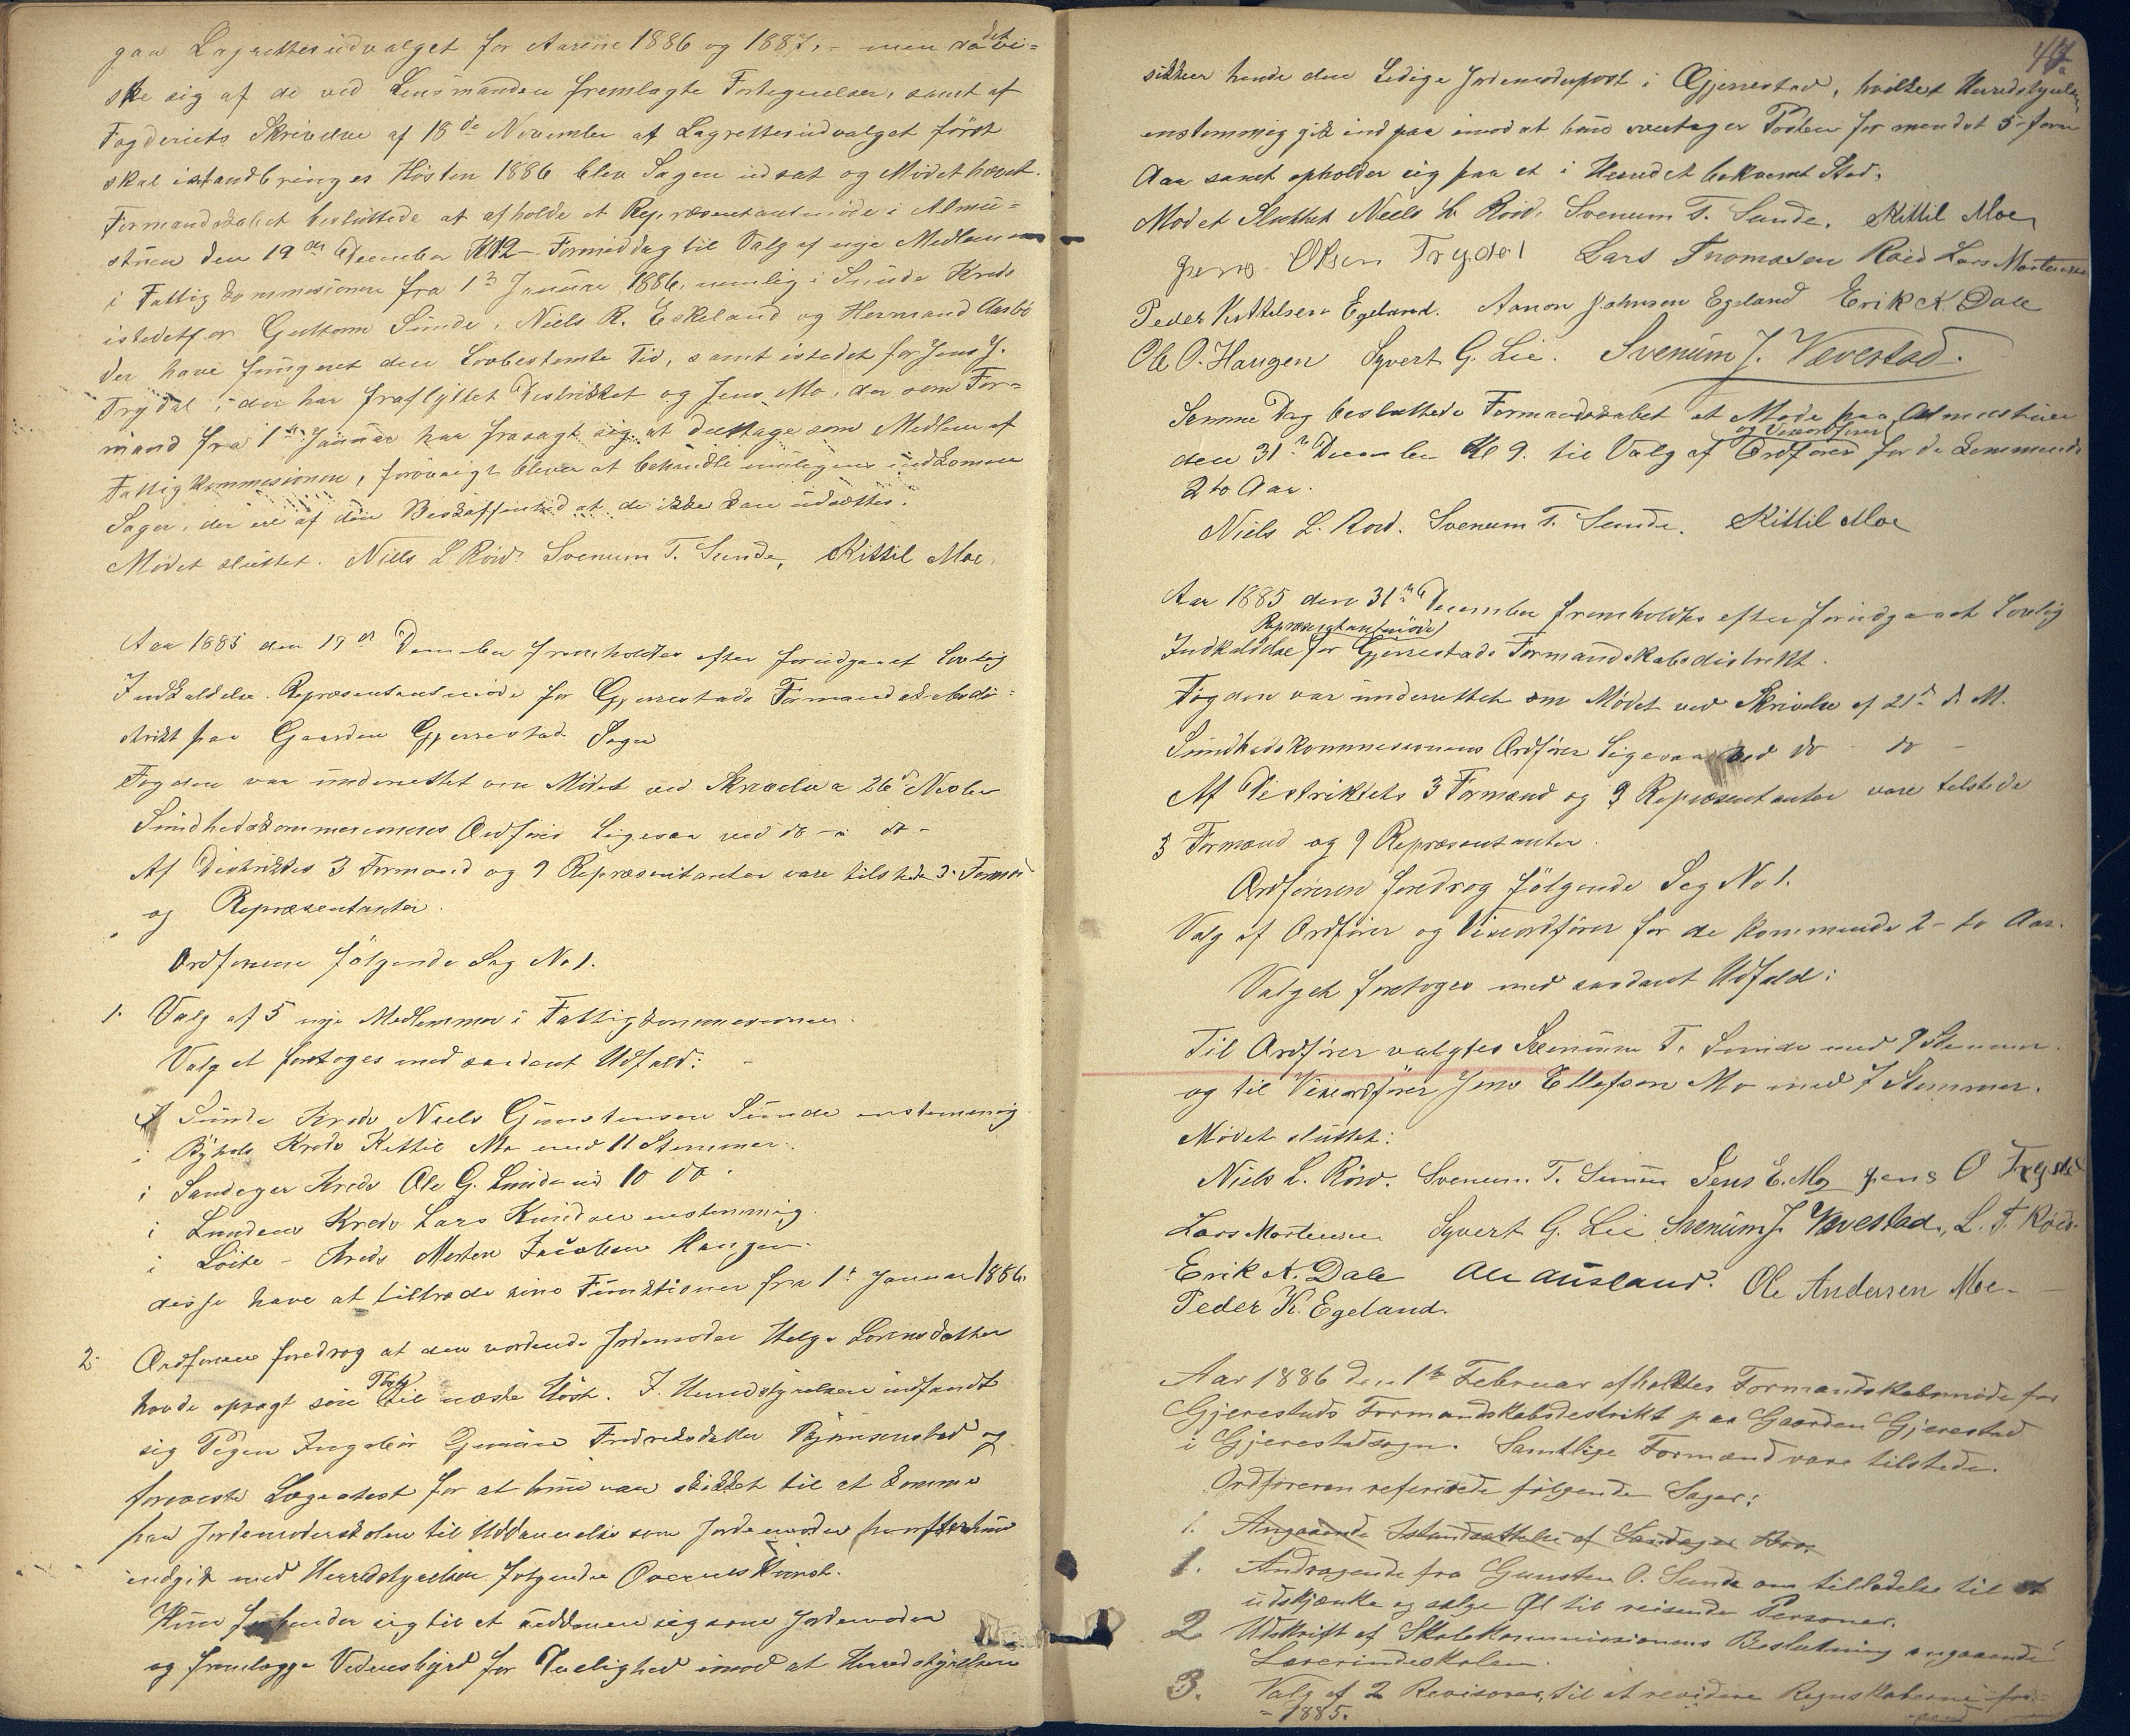 gaa Lagrettesudvalget for Aarene 1886 og 1887, - men da det vi=
ste sig af de ved Lensmanden fremlagte Fortegnelser, samt af
Fogderiets Skrivelse af 18de November at Lagrettesudvalget först
skal istandbringes Hösten 1886 blev Sagen udsat og Mödet hævet.
Formandskabet besluttede at afholde et Repræsentantmöde i Almu=
stuen den 19de December Kl 12 Formiddag til Valg af nye Medlemmer
i Fattigkommesionen fra 1ste Januar 1886, nemlig i Sunde Kreds
istedetfor Guttorm Sunde, Niels R. Eskeland og Hermand Aasbö
der have fungeret den Lovbestemte Tid, samt istedet for Jens J.
Trydal, der har fraflyttet Distriktet og Jens Mo, der som For=
mand fra 1ste Januar har frasagt sig at deeltage som Medlem af
Fattigkommesionen, forövrigt bliver at behandle muligens indkomne
Sager, der ere af den Beskaffenhed at de ikke kan udsættes.
Mödet sluttet. Niels L Röed Svenum T. Sunde, Kittil Moe.
Aar 1885 den 19de December fremholdtes efter forudgaaet lovlig
Indkaldelse Repræsentantmöde for Gjerrestads Formandskabsdi=
strikt paa Gaarden Gjerrestad Sogn
Fogden var underrettet om Mödet ved Skrivelse a 26de Novber
Sundhedskommesionens Ordförer ligesaa ved do - a do -
Af Distriktes 3 Formænd og 9 Repræsentanter vare tilstede 3 Formænd
og Repræsentanter.
Ordföreren fölgende Sag No 1.
1. Valg af 5 nye Medlemmer i Fattigkommesionen.
Valget foretoges med saadant Udfald:
I Sunde Kreds Niels Gunstensen Sunde enstemmig
i Kreds Kittil Mo med 11 Stemmer.
i Sandager Kreds Ole G. Sunde med 10 do.
i Lunden Kreds Lars Knudsen enstemmig.
i Löite - Kreds Morten Jacobsen Haugen.
disse have at tiltræde sine Funktioner fra 1ste Januar 1886.
2. Ordföreren foredrog at den værende Jordemoder Helge Lorensdatter
havde opsagt sin Post til næste Höst. I Herredstyrelsen indfandt
sig Pigen Ingebör Gunäre Fredreksdatter Bjönsenstad og
foreviste Lægeatest for at hun var skikket til at komme
paa Jordemoderskolen til Uddannelse som Jordemoder hvorefter hun
indgik med Herredstyrelsen fölgende Overenskomst.
Hun forbinder sig til at uddanne sig som Jordemoder
og fremlægge Vidnesbyrd for Duelighed imod at Herredstyrelsen
44
sikkrer hende den ledige Jordemoderpost i Gjerrestad, hvilket Herredstyrelsen
enstemmig gik ind paa imod at hun overtager Posten for mindst 5-fem
Aar samt opholder sig paa et i Herredet bekvemt Sted.
Mödet Sluttet Niels L. Röed, Svenum T. Sunde. Kittil Moe
Jens Olsen Trydal Lars Thomasen Röed Lars Mortensen
Peder Kittelsen Egeland. Aanon Johnsen Egeland Erik K. Dale
Ole O. Haugen Syvert G. Lie. Svenum J. Vævestad.
Samme Dag besluttede Formandskabet et Möde paa Almustuen
den 31te December Kl 9. til Valg af Ordförer og Viseordförer for de kommende
2to Aar.
Niels L. Röed. Svenum T. Sunde. Kittil Moe
Aar 1885 den 31te December fremholdtes efter forudgaaet lovlig
Indkaldelse Repræsentantmöde for Gjerrestads Formandskabsdistrikt.
Fogden var underrettet om Mödet ved Skrivelse af 21de d. M.
Sundhedskommesionens Ordförer ligesaa ved do - do -
Af Distriktets 3 Formænd og 9 Repræsentanter vare tilstede
3 Formænd og 9 Repræsentanter.
Ordföreren foredrog fölgende Sag No 1.
Valg af Ordförer og Viseordförer for de kommende 2-to Aar.
Valget foretoges med saadant Udfald:
Til Ordförer valgtes Svenum T. Sunde med 9 Stemmer.
og til Viseordförer Jens Ellefsen Mo med 7 Stemmer.
Mödet sluttet:
Niels L. Röed. Svenum. T. Sunde Jens E. Mo Jens O Trydal
Lars Mortensen Syvert G. Lie Svenum J. Vævestad, L. T. Röed.
Erik K. Dale Ole Ausland. Ole Andersen Moe -
Peder K. Egeland.
Aar 1886 den 1te Februar afholdtes Formandskabsmöde for
Gjerestads Formandskabsdestrikt paa Gaarden Gjerestad
i Gjerestadsogn. Samtlige Formænd vare tilstede.
Ordföreren refererede fölgende Sager:
1. Angaaende Istandsættelse af Sandager Bro.
1. Andragende fra Gunsten O. Sunde om tilladelse til at
udskjænke og sælge Øl til reisende Personer.
2 Udskrift af Skolekommissionens Beslutning angaaende
Lærerindeskolen.
3. Valg af 2 Revisorer, til at revidere Regnskaberne for
- 1885.